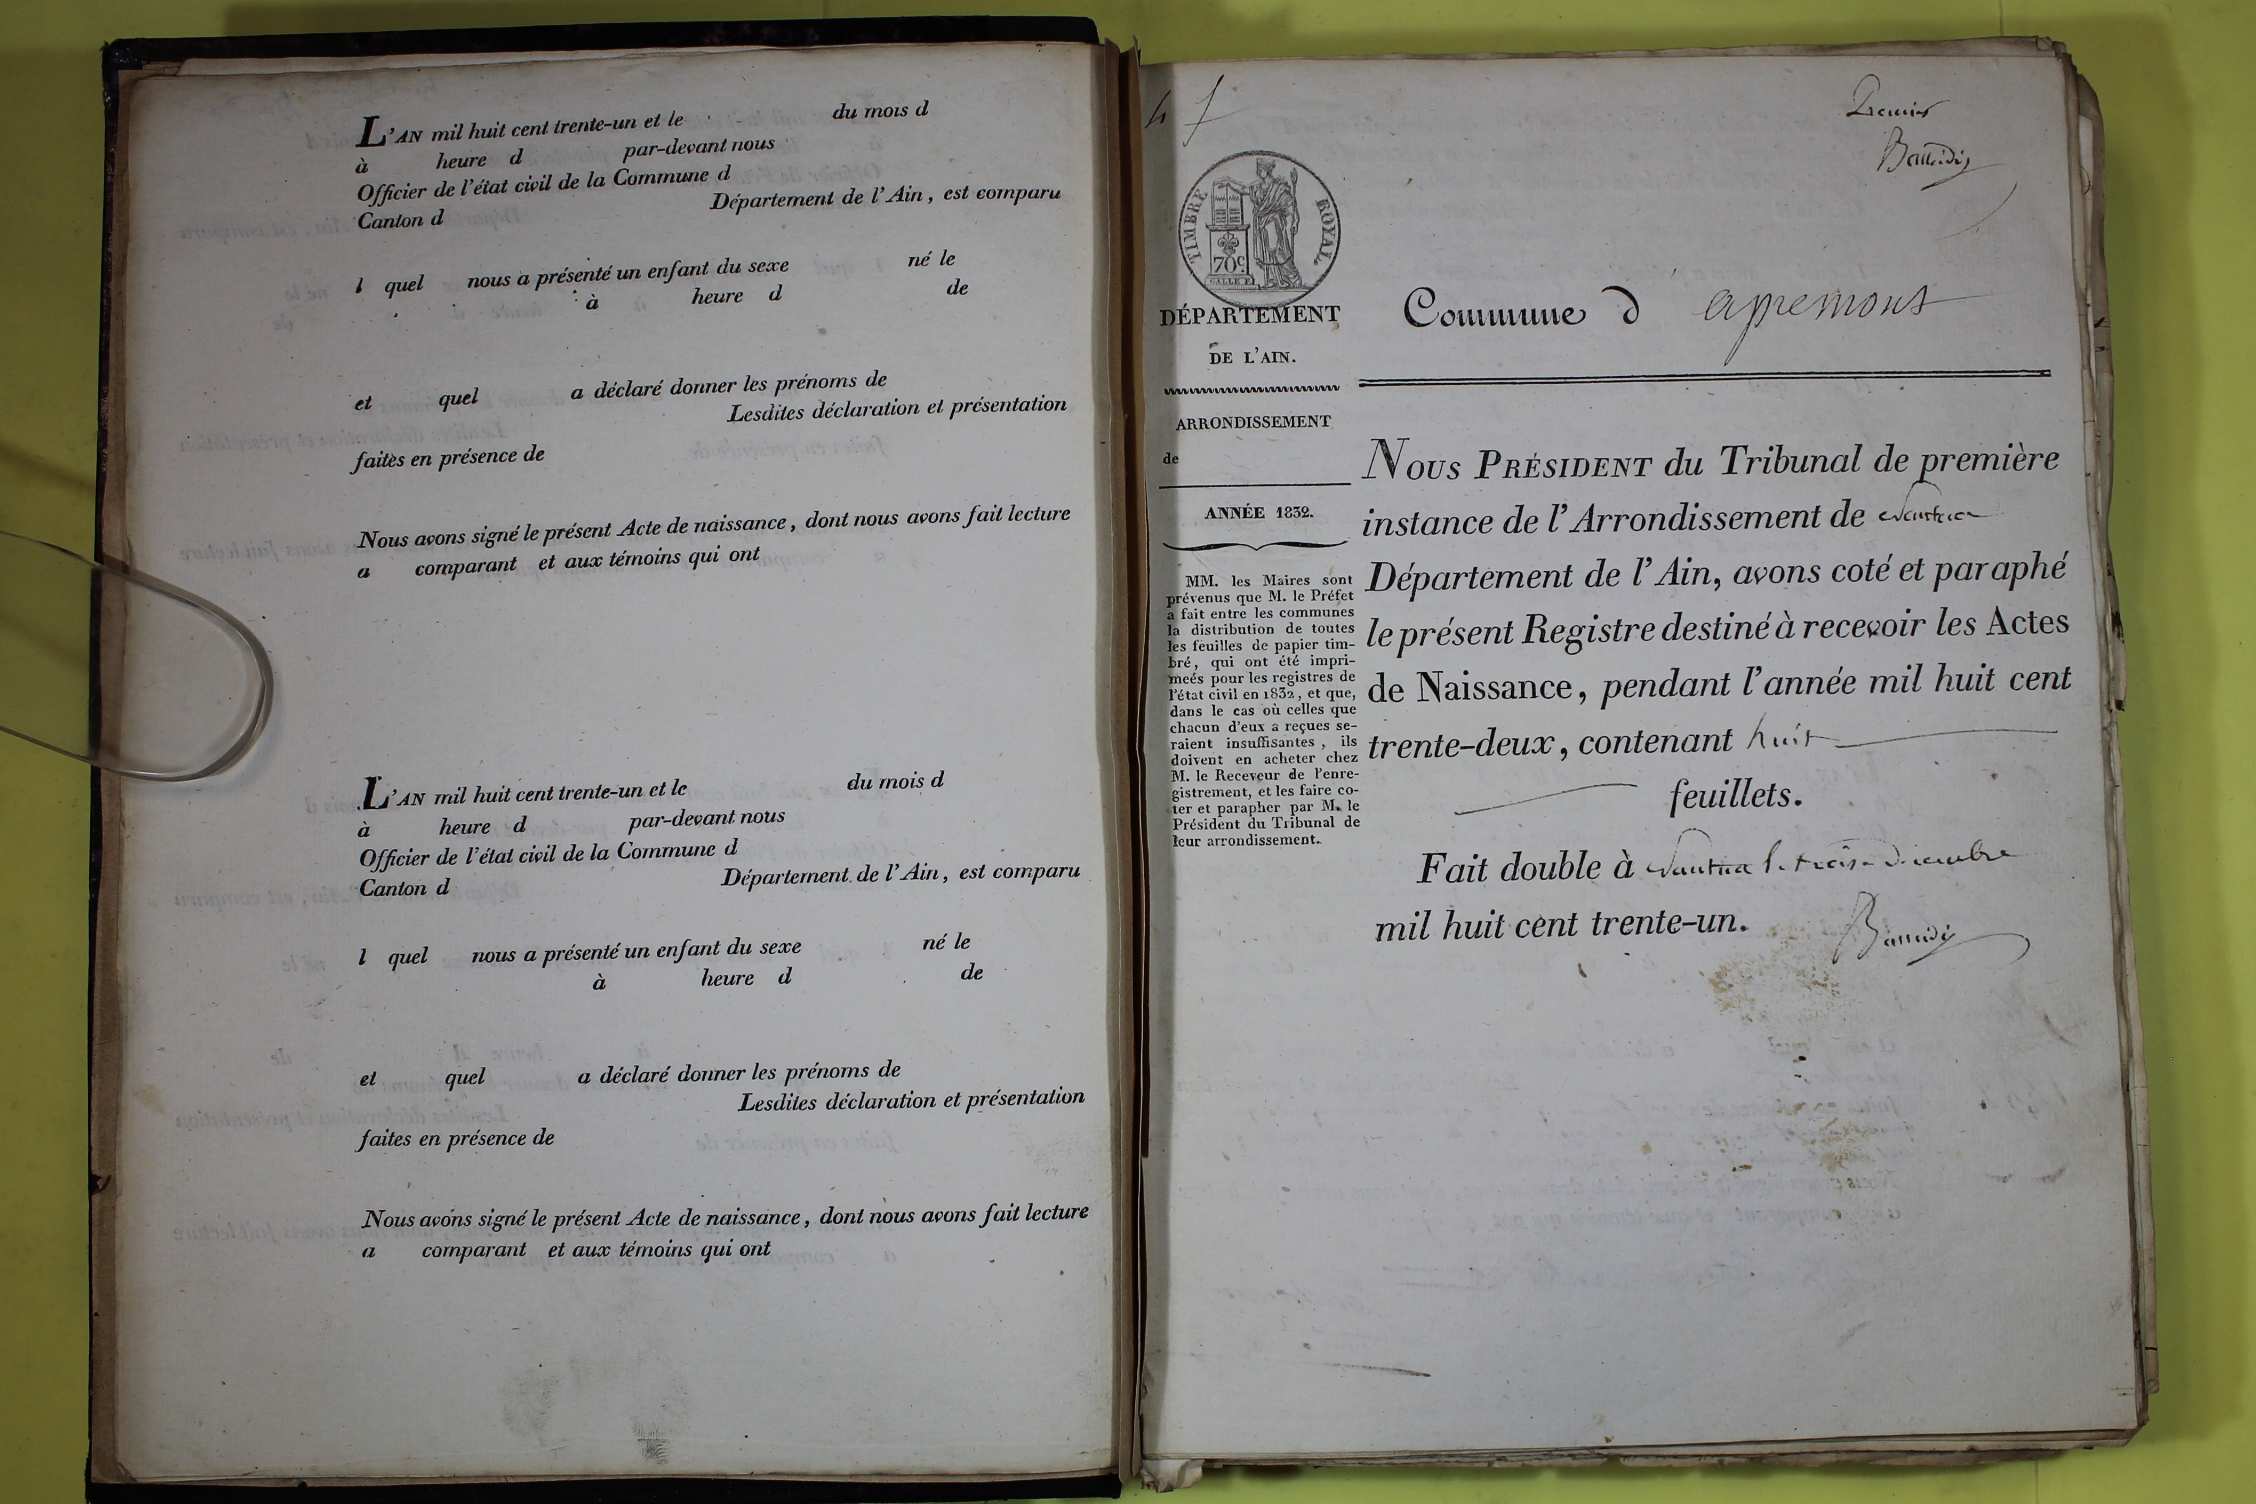 L'AN mil huit cent trente-un et le du mois d
à heure d par-devant nous
Officier de l'état civil de la Commune d
Canton d Département de l'Ain, est comparu
l quel nous a présenté un enfant du sexe né le
à heure d de
et quel a déclaré donner les prénoms de
Lesdites déclaration et présentation
faites en présence de
Nous avons signé le présent Acte de naissance, dont nous avons fait lecture
a comparant et aux témoins qui ont
L'AN mil huit cent trente-un et le du mois d
à heure d par-devant nous
Officier de l'état civil de la Commune d
Canton d Département de l'Ain, est comparu
l quel nous a présenté un enfant du sexe né le
à heure d de
et quel a déclaré donner les prénoms de
Lesdites déclaration et présentation
faites en présence de
Nous avons signé le présent Acte de naissance, dont nous avons fait lecture
a comparant et aux témoins qui ont
Premier
TIMBRE ROYAL
70c
DÉPARTEMENT
DE L'AIN.
ARRONDISSEMENT
de
ANNÉE 1832.
MM. les Maires sont
prévenus que M. le Préfet
a fait entre les communes
la distribution de toutes
les feuilles de papier tim-
bré, qui ont été impri-
meés pour les registres de
l'état civil en 1832, et que,
dans le cas où celles que
chacun d'eux a reçues se-
raient insuffisantes, ils
doivent en acheter chez
M. le Receveur de l'enre-
gistrement, et les faire co-
ter et parapher par M. le
Président du Tribunal de
leur arrondissement.
Commune d apremont
NOUS PRÉSIDENT du Tribunal de première
instance de l'Arrondissement de Nantua
Département de l'Ain, avons coté et paraphé
le présent Registre destiné à recevoir les Actes
de Naissance, pendant l'année mil huit cent
trente-deux, contenant huit
feuillets.
Fait double à Nantua le trois décembre
mil huit cent trente-un.